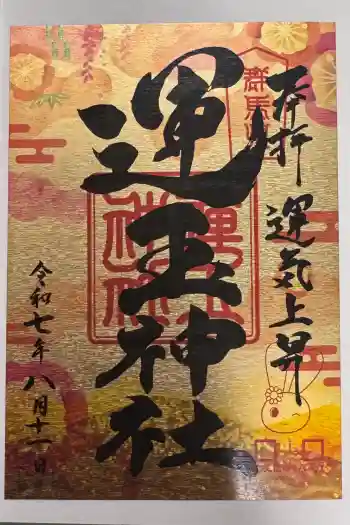 奉拝 運気上昇
運玉神社
令和七年八月十一日